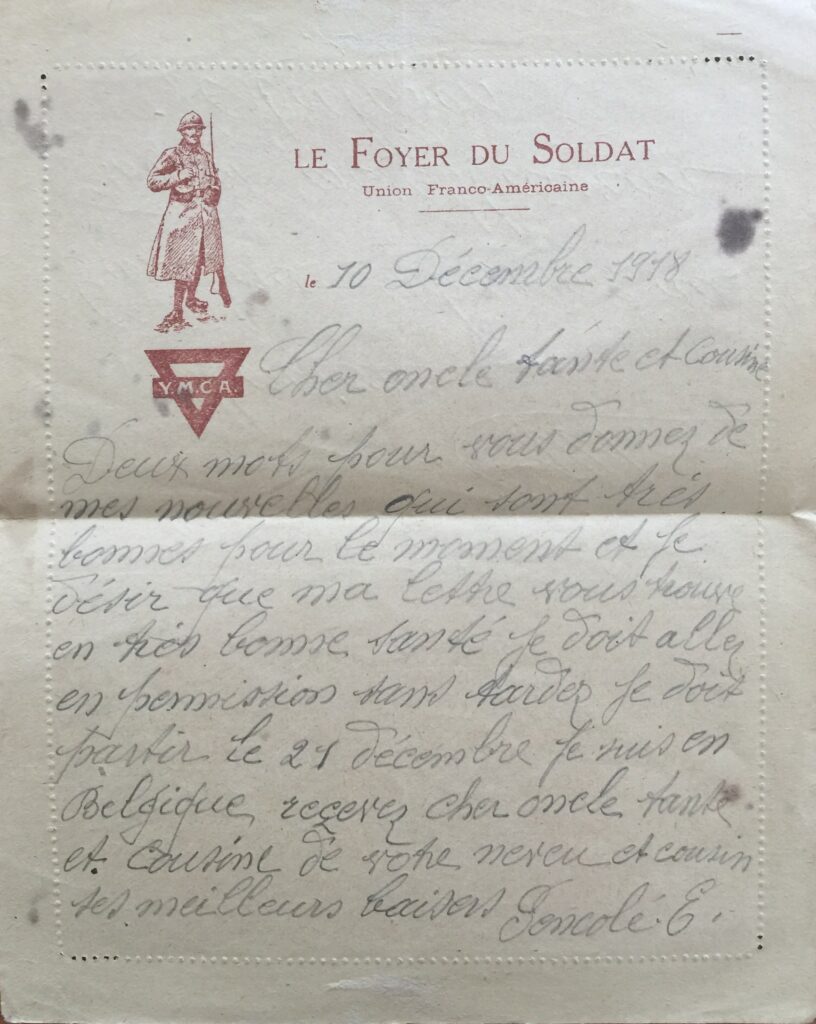 LE FOYER DU SOLDAT
Union Franco-Américaine
le 10 Décembre 1918
Y.M.C.A.
Cher oncle tánte et Cousine
Deux mots pour vous donnez de
mes nouvelles qui sont trés
bonnes pour le moment et je
désir que ma lettre vous trouve
en trés bonne santé je doit allez
en permission sans tardez je doit
partir le 21 décembre je suis en
Belgique, reçevez cher oncle tante
et Cousine de votre neveu et cousin
ses meilleurs baisers
E.